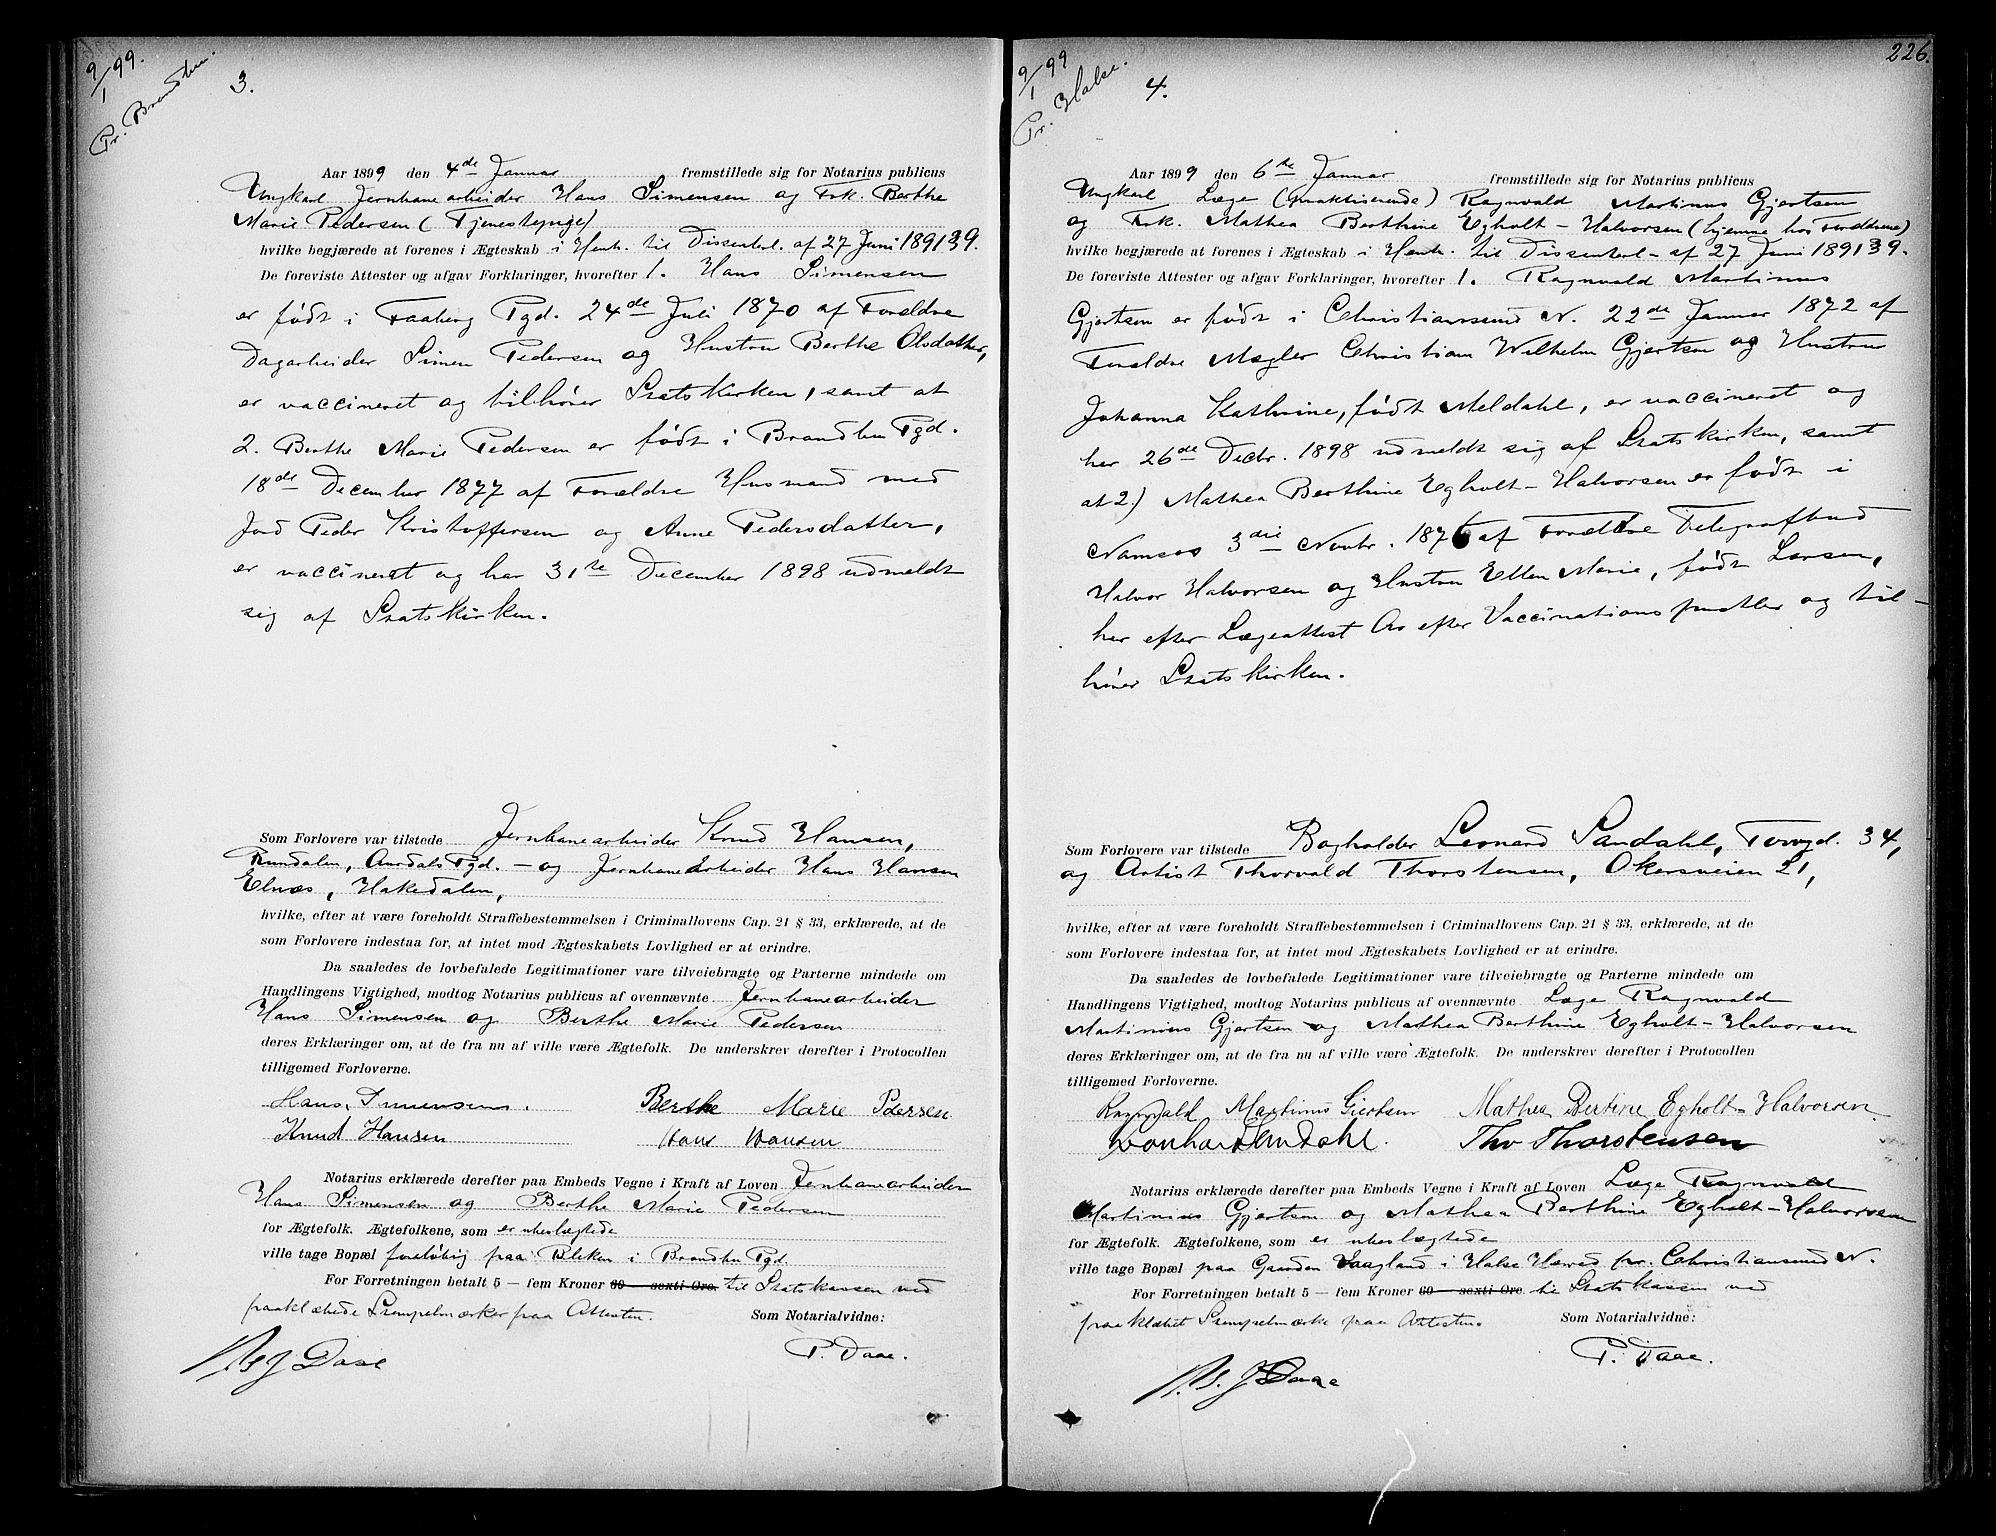 9/1 99.
Pr. Brandbu.
3.
Aar 1899 den 4de Januar fremstillede sig for Notarius publicus
Ungkarl Jernbanearbeider Hans Simensen og Frk. Berthe
Marie Pedersen (Tjenestepige)
hvilke begjærede at forenes i Ægteskab i Henh. til Dissenterl. af 27 Juni 1891 39.
De foreviste Attester og afgav Forklaringer, hvorefter 1. Hans Simensen
er født i Faaberg Pgd. 24de Juli 1870 af Forældre
Dagarbeider Simen Pedersen og Hustru Berthe Olsdatter,
er vaccineret og tilhører Statskirken, samt at
2. Berthe Marie Pedersen er født i Brandbu Pgd.
18de December 1877 af Forældre Husmand med
Jord Peder Kristoffersen og Anne Pedersdatter,
er vaccineret og har 31te December 1898 udmeldt
sig af Statskirken.
Som Forlovere var tilstede Jernbanearbeider Knud Hansen,
Aurdals Pgd. – og Jernbanearbeider Hans Hansen
Elnæs, Hakedalen,
hvilke, efter at være foreholdt Straffebestemmelsen i Criminallovens Cap. 21 § 33, erklærede, at de
som Forlovere indestaa for, at intet mod Ægteskabets Lovlighed er at erindre.
Da saaledes de lovbefalede Legitimationer vare tilveiebragte og Parterne mindede om
Handlingens Vigtighed, modtog Notarius publicus af ovennævnte Jernbanearbeider
Hans Simensen og Berthe Marie Pedersen
deres Erklæringer om, at de fra nu af ville være Ægtefolk. De underskrev derefter i Protocollen
tilligemed Forloverne.
Hans Simensen. Berthe Marie Pdersen
Knud Hansen Hans Hansen
Notarius erklærede derefter paa Embeds Vegne i Kraft af Loven Jernbanearbeider
Hans Simensen og Berthe Marie Pedersen
for Ægtefolk. Ægtefolkene, som er ubeslægtede
ville tage Bopæl foreløbig paa Bleken i Brandbu Pgd.
For Forretningen betalt 5 — fem Kroner 60 — sexti Øre til Statskassen ved
paaklæbede Stempelmærker paa Attesten. Som Notarialvidne:
P. Daae.
J Daae
226.
9/1 99
Pr. Halse.
4.
Aar 1899 den 6te Januar fremstillede sig for Notarius publicus
Ungkarl Læge (praktiserende) Ragnvald Martinus Gjertsen
og Frk. Mathea Berthine Egholt-Halvorsen (hjemme hos Forældrene)
hvilke begjærede at forenes i Ægteskab i Henh. til Dissenterl. af 27 Juni 1891 39.
De foreviste Attester og afgav Forklaringer, hvorefter 1. Ragnvald Martinus
Gjertsen er født i Christianssund N. 22de Januar 1872 af
Forældre Mægler Christian Wilhelm Gjertsen og Hustru
Johanna Kathrine, født Meldahl, er vaccineret og
har 26de Decbr. 1898 udmeldt sig af Statskirken, samt
at 2.) Mathea Berthine Egholt-Halvorsen er født i
Namsos 3die Novbr. 1876 af Forældre Telegrafbud
Halvor Halvorsen og Hustru Ellen Marie, født Larsen,
har efter Lægeattest Ar efter Vaccinationspustler og til-
hører Statskirken.
Som Forlovere var tilstede Bogholder Leonard Sandahl, Torvgd. 34,
og Artist Thorvald Thorstensen, Akersveien 21,
hvilke, efter at være foreholdt Straffebestemmelsen i Criminallovens Cap. 21 § 33, erklærede, at de
som Forlovere indestaa for, at intet mod Ægteskabets Lovlighed er at erindre.
Da saaledes de lovbefalede Legitimationer vare tilveiebragte og Parterne mindede om
Handlingens Vigtighed, modtog Notarius publicus af ovennævnte Læge Ragnvald
Martinius Gjertsen og Mathea Berthine Egholt-Halvorsen
deres Erklæringer om, at de fra nu af ville være Ægtefolk. De underskrev derefter i Protocollen
tilligemed Forloverne.
Ragnvald Martinus Giertsen Mathea Bertine Egholt-Halvorsen
Leonhard Sandahl. Thv Thorstensen
Notarius erklærede derefter paa Embeds Vegne i Kraft af Loven Læge Ragnvald
Martinius Gjertsen og Mathea Berthine Egholt-Halvorsen
for Ægtefolk. Ægtefolkene, som er ubeslægtede
ville tage Bopæl paa Gaarden Vaagland i Halse Herred pr. Christianssund N.
For Forretningen betalt 5 — fem Kroner 60 — sexti Øre til Statskassen ved
paaklæbet Stempelmærke paa Attesten. Som Notarialvidne:
P. Daae.
J Daae